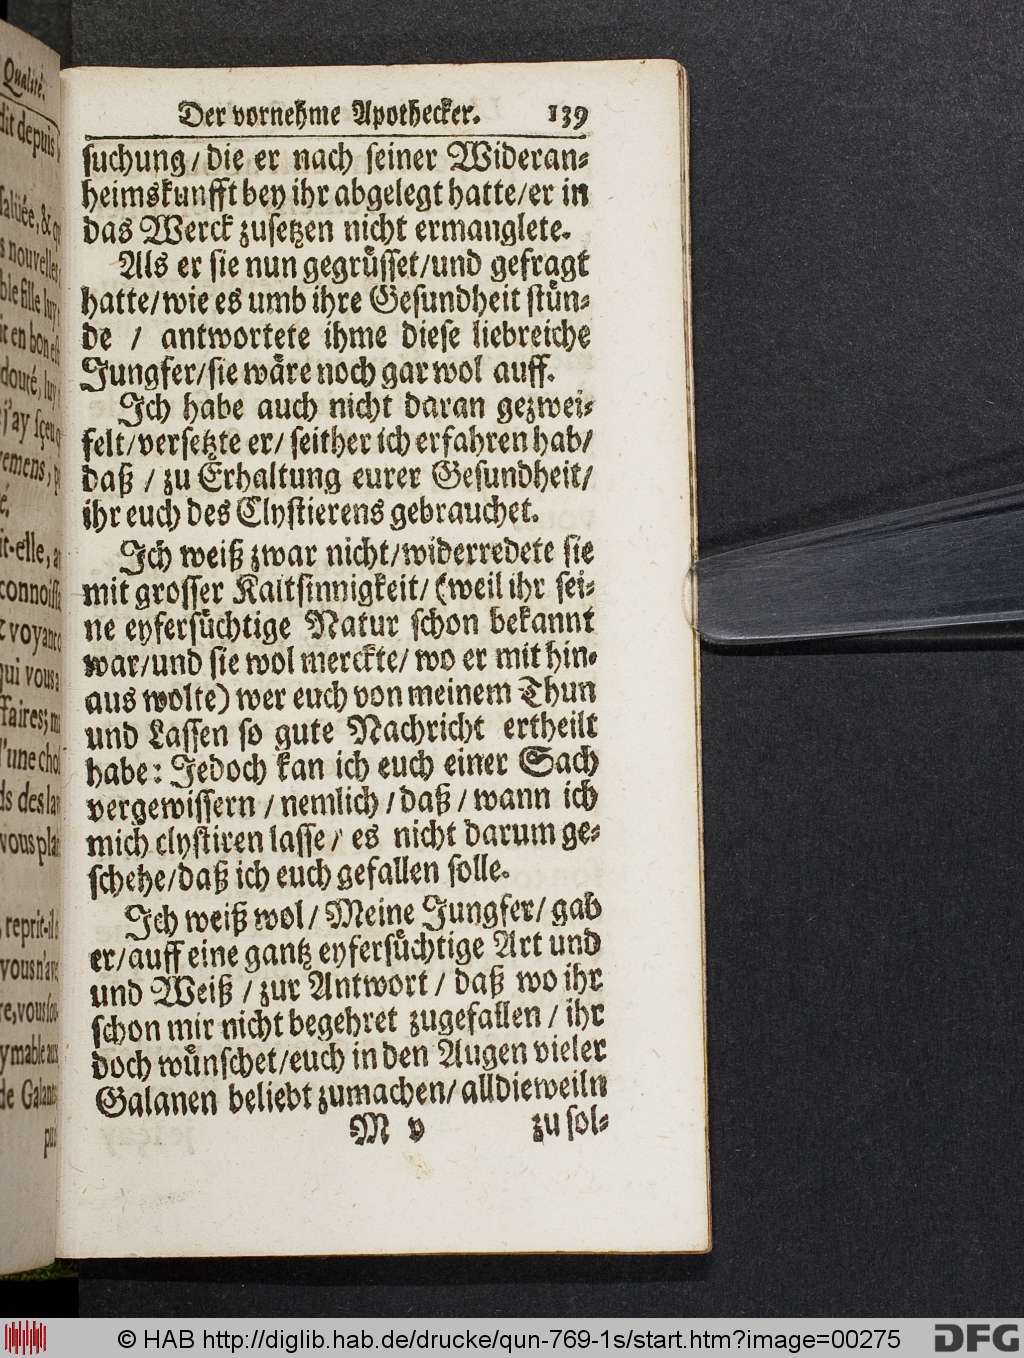 Qualité.
dit depuis
saluée, & q
s nouvelles
ble fille luy
it en bon est
douté, luy
j'ay sçeu q
emens, p
é,
it-elle, a
connoiss
voyant
qui vous a
ffaires; m
l'une chos
ds des lav
vous plai
reprit-il
vous n'av
re, vous sou
ymable aux
de Galans
Der vornehme Apothecker. 139
suchung / die er nach seiner Wideran⸗
heimskunfft bey ihr abgelegt hatte/er in
das Werck zusetzen nicht ermanglete.
Als er sie nun gegrüsset/und gefragt
hatte/wie es umb ihre Gesundheit stün⸗
de / antwortete ihme diese liebreiche
Jungfer/sie wäre noch gar wol auff.
Ich habe auch nicht daran gezwei⸗
felt/versetzte er/ seither ich erfahren hab/
daß / zu Erhaltung eurer Gesundheit/
ihr euch des Clystierens gebrauchet.
Ich weiß zwar nicht/widerredete sie
mit grosser Kaltsinnigkeit/ (weil ihr sei⸗
ne eyfersüchtige Natur schon bekannt
war/und sie wol merckte/ wo er mit hin⸗
aus wolte) wer euch von meinem Thun
und Lassen so gute Nachricht ertheilt
habe: Jedoch kan ich euch einer Sach
vergewissern / nemlich / daß / wann ich
mich clystiren lasse / es nicht darum ge⸗
schehe/daß ich euch gefallen solle.
Ich weiß wol / Meine Jungfer/ gab
er/auff eine gantz eyfersüchtige Art und
und Weiß / zur Antwort / daß wo ihr
schon mir nicht begehret zugefallen / ihr
doch wünschet/euch in den Augen vieler
Galanen beliebt zumachen/ alldieweiln
M v zu sol⸗
© HAB http://diglib.hab.de/drucke/qun-769-1s/start.htm?image=00275 DFG